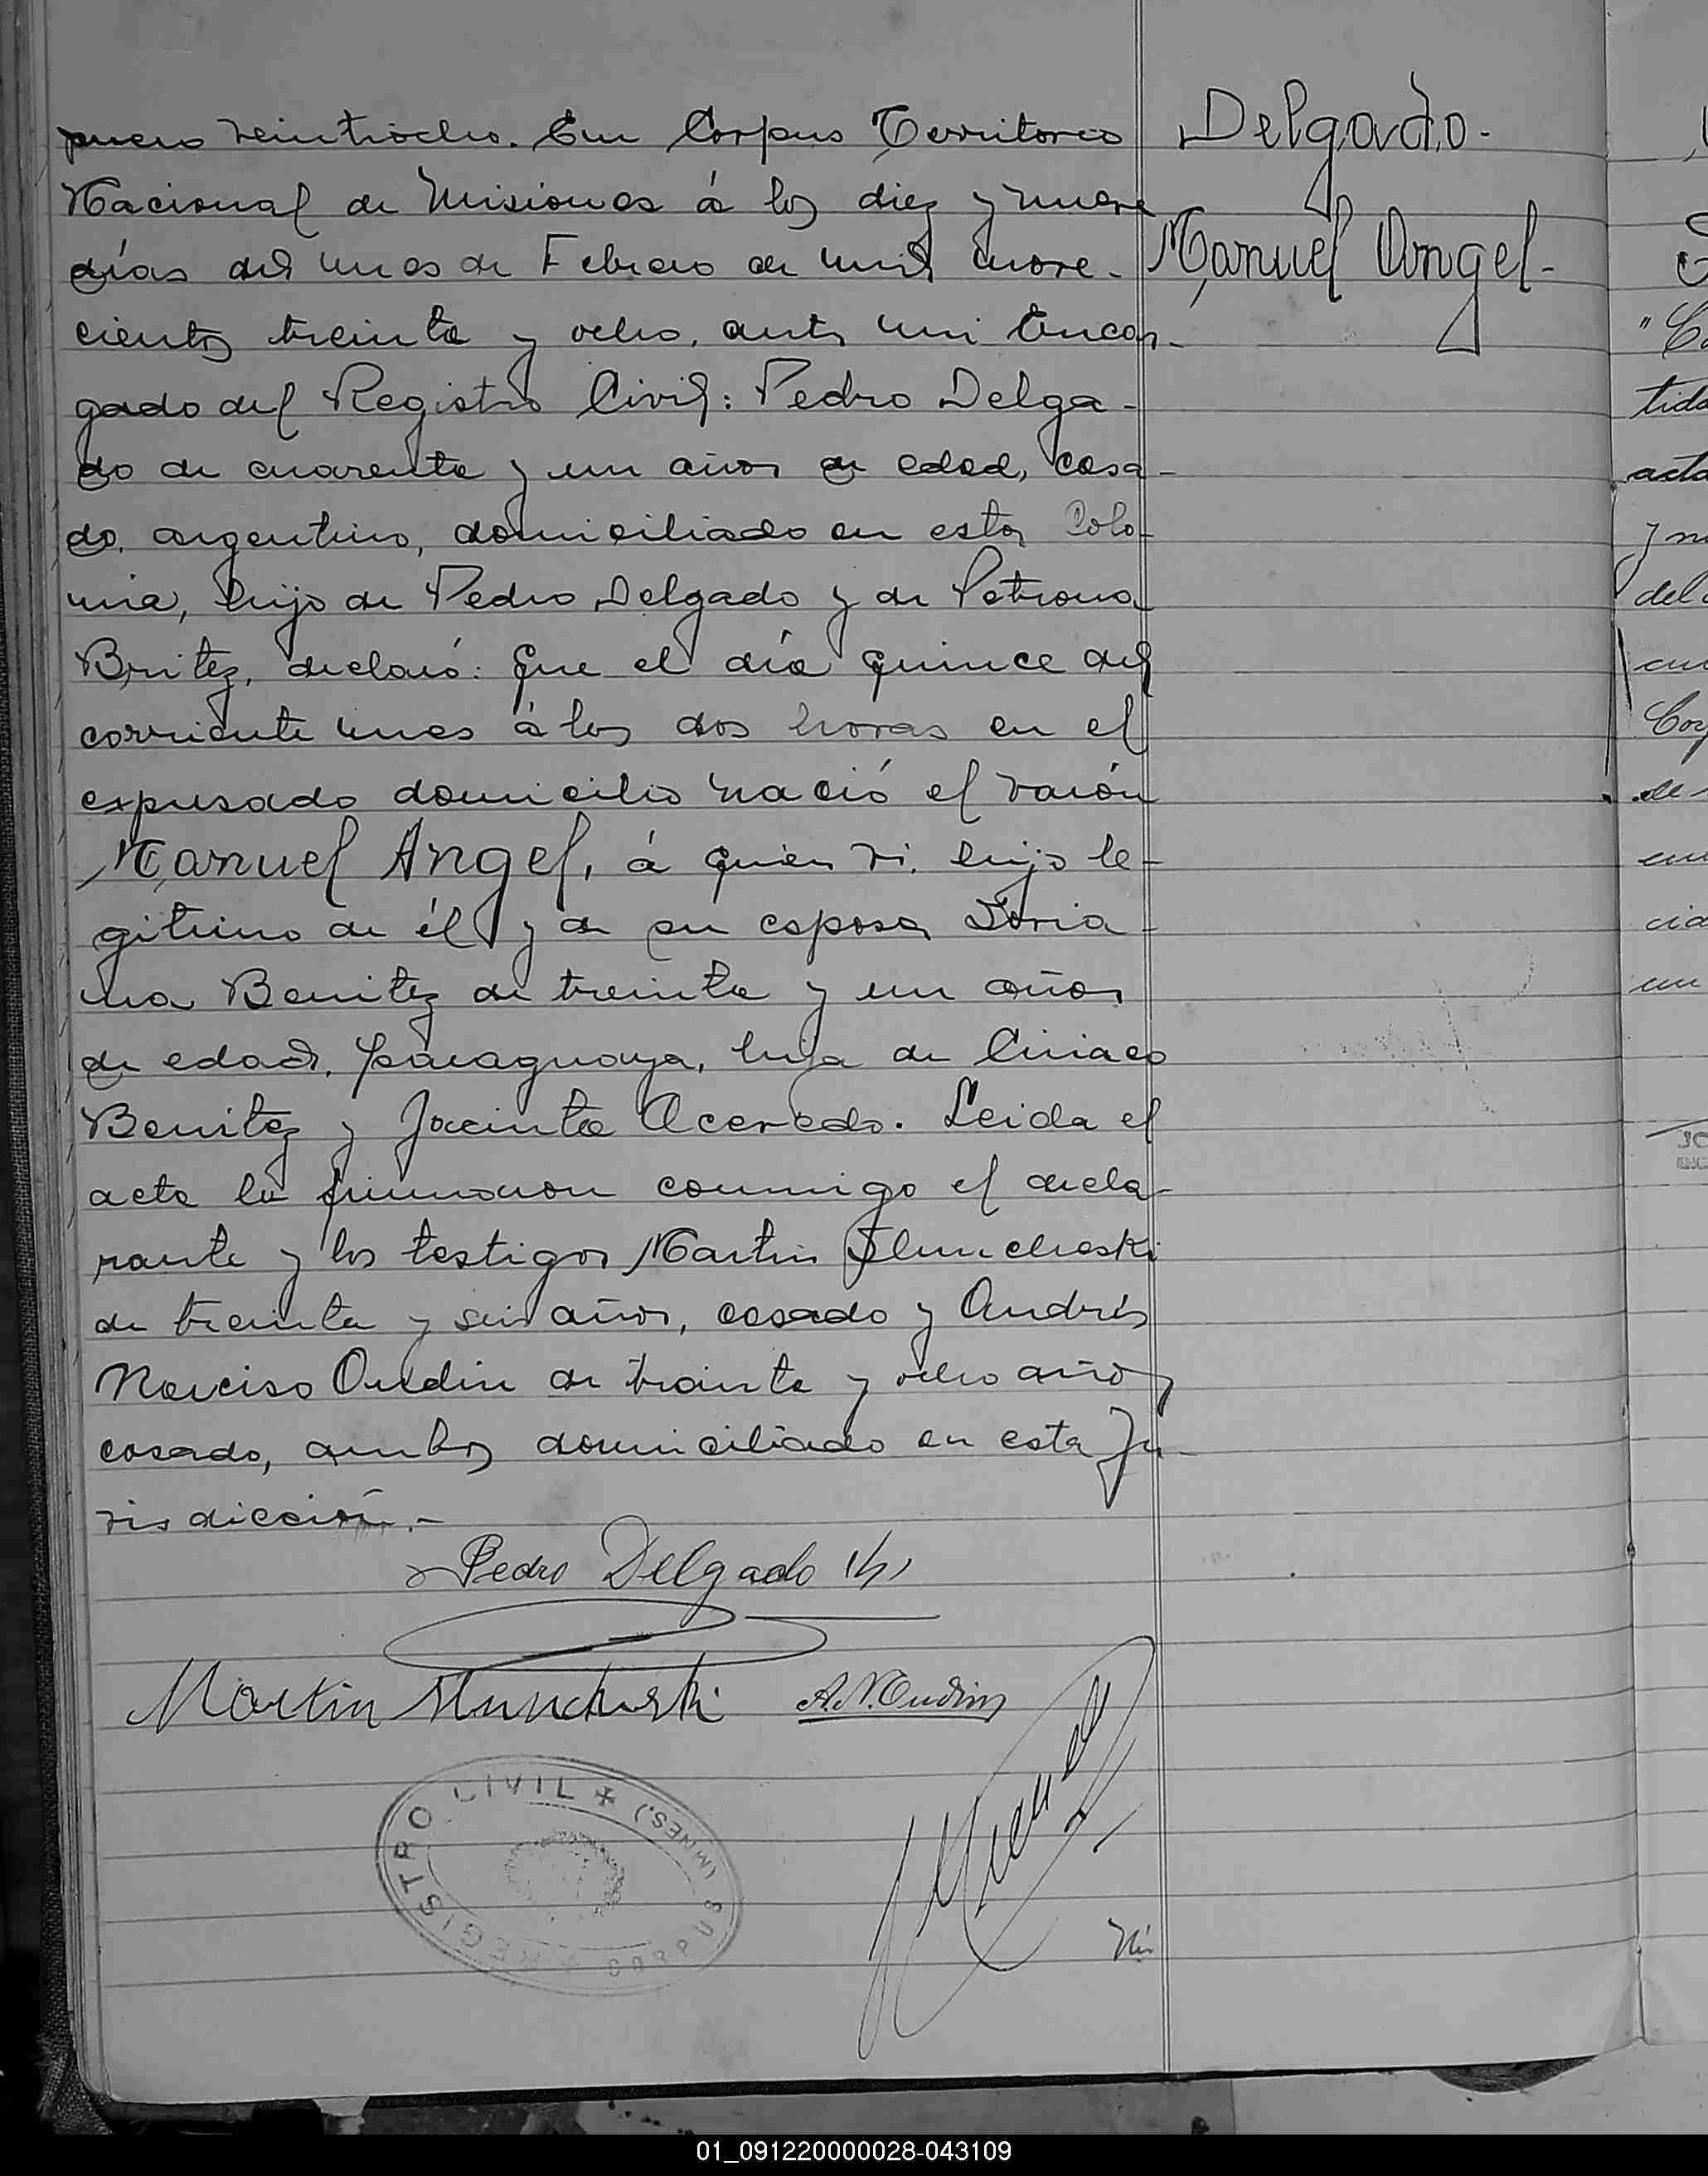 mero veintiocho. En Corpus Territorio
Nacional de Misiones á los diez y nueve
días del mes de Febrero de mil nove-
cientos treinta y ocho, ante mi Encar-
gado del Registro Civil: Pedro Delga-
do de cuarenta y un años de edad, casa-
do, argentino, domiciliado en esta Colo-
nia, hijo de Pedro Delgado y de Petrona
Britez, declaró: Que el día quince del
corriente mes á las dos horas en el
expresado domicilio nació el varón
Manuel Angel, á quien vi, hijo le-
gitimo de él y de su esposa
Benitez de treinta y un años
de edad, paraguaya, hija de Ciriaco
Benitez y Jacinta Acevedo. Leida el
acta la firmaron conmigo el decla-
rante y los testigos Martin
de treinta y seis años, casado y Andrés
Narciso Oudin de treinta y ocho años
casado, ambos domiciliado en esta Ju-
risdicción.-
Delgado-
Manuel Angel-
Pedro Delgado (h)
Martin
A.N. Oudin
REGISTRO CIVIL ✠ (MNES.)
CORPUS
"C
tida
acta
y n
del
Cor
de
cia
un
01_091220000028-043109